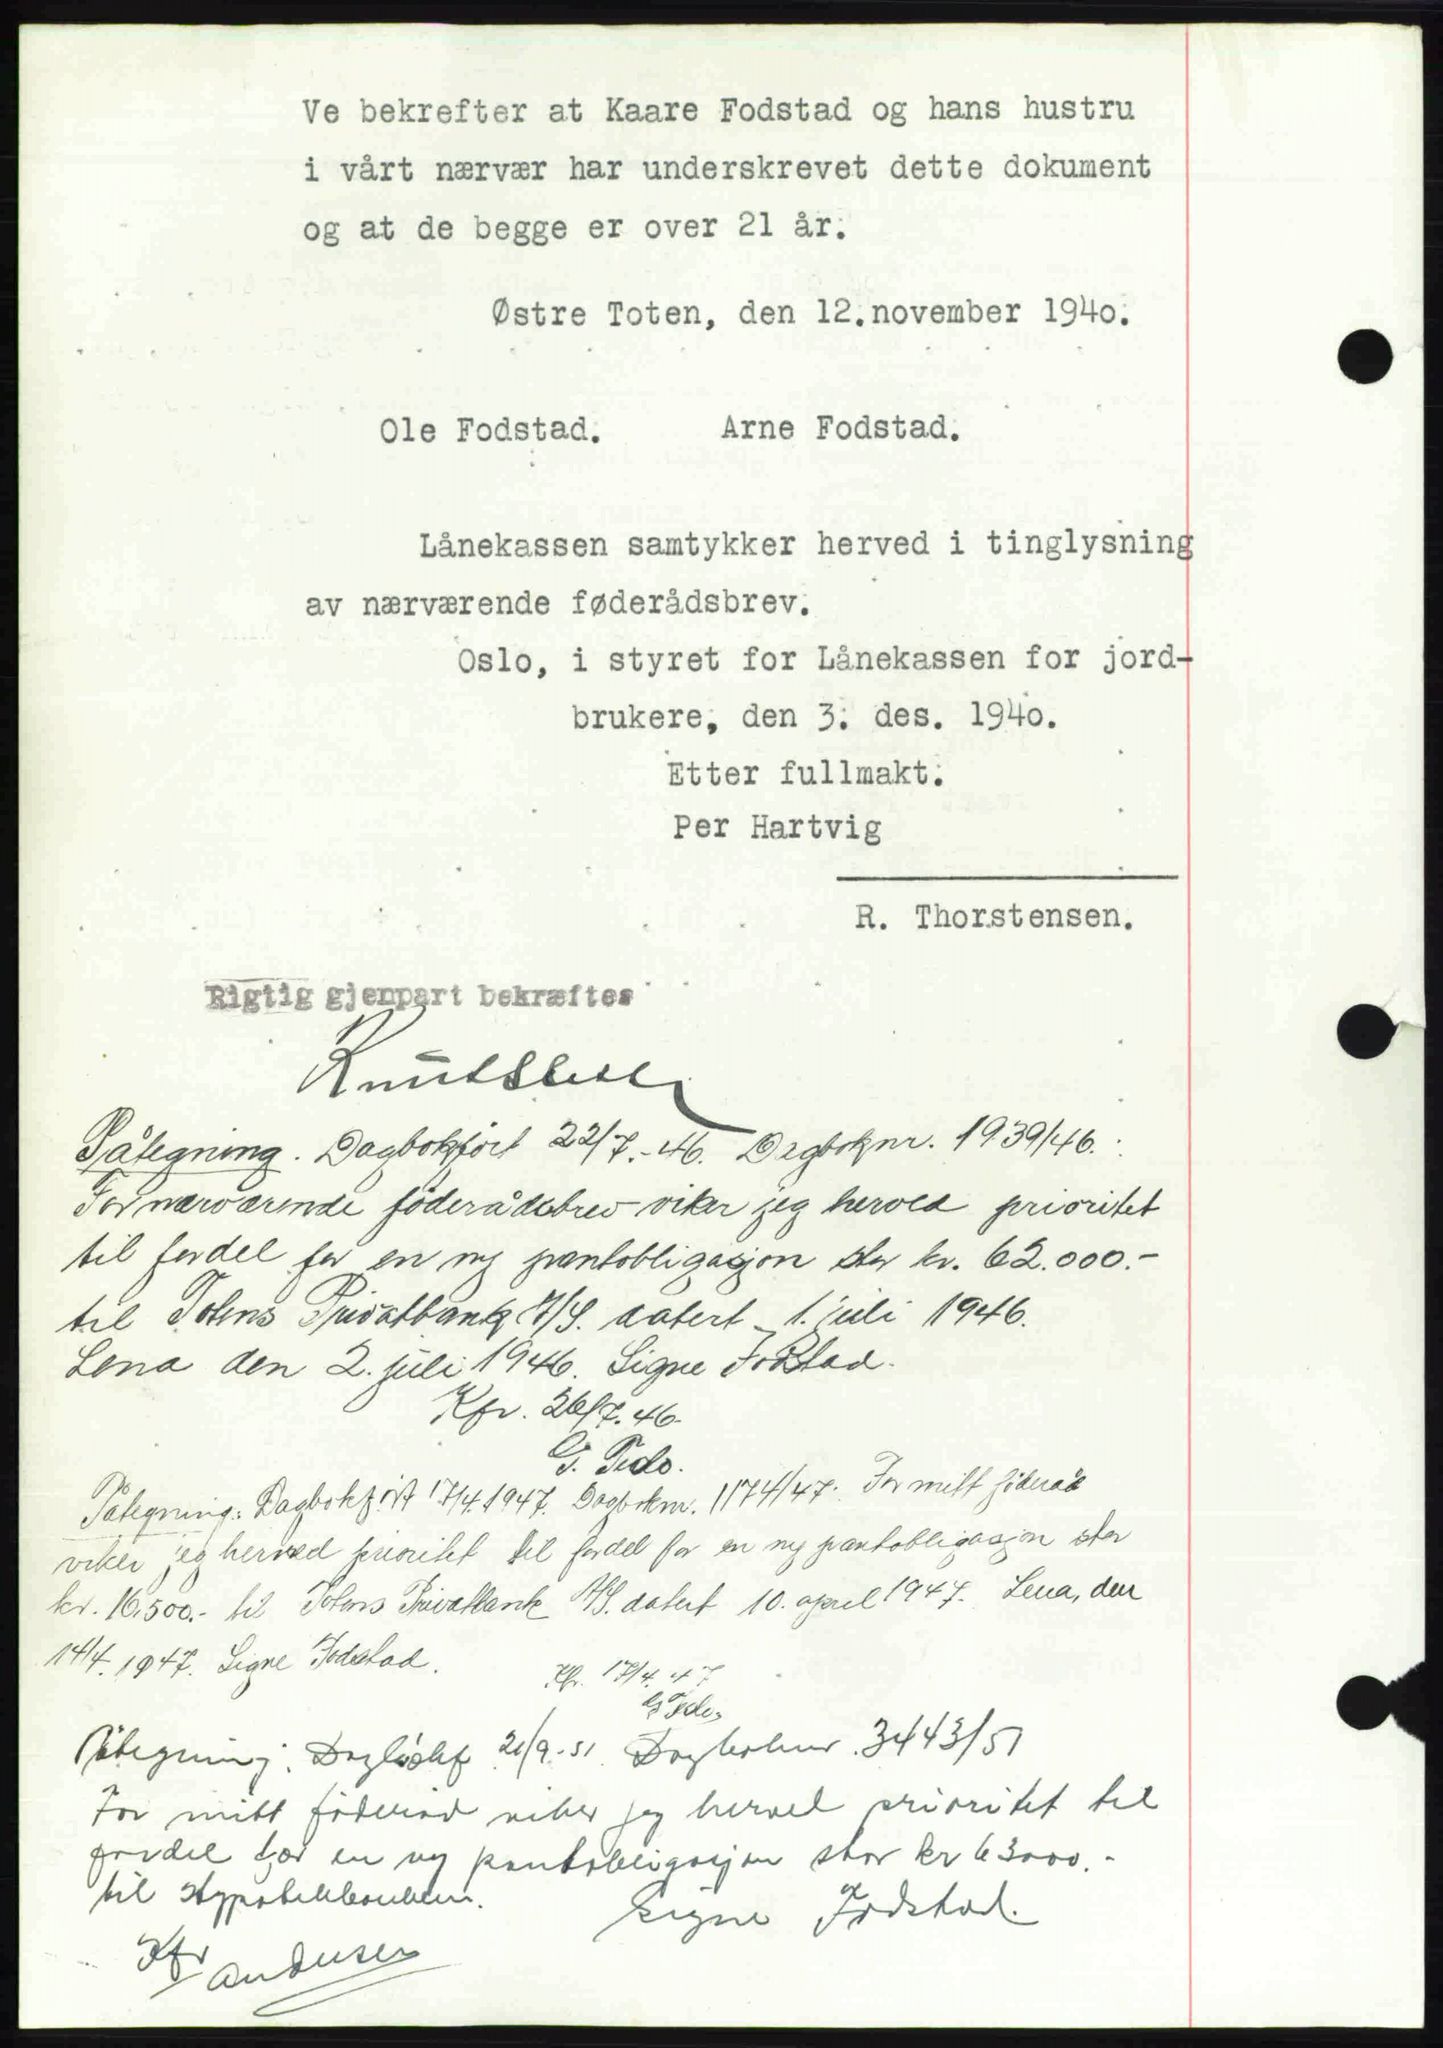 Ve bekrefter at Kaare Fodstad og hans hustru
i vårt nærvær har underskrevet dette dokument
og at de begge er over 21 år.
Østre Toten, den 12.november 1940.
Ole Fodstad. Arne Fodstad.
Lånekassen samtykker herved i tinglysning
av nærværende føderådsbrev.
Oslo, i styret for Lånekassen for jord-
brukere, den 3. des. 1940.
Etter fullmakt.
Per Hartvig
R. Thorstensen.
Rigtig gjenpart bekræftes
Påtegning. Dagbokført 22/7.-46. Dagboknr. 1939/46.:
For nærværende föderådsbrev viker jeg herved prioritet
til fordel for en ny pantobligasjon stor kr. 62.000.-
til Totens Privatbank A/S. datert 1. juli 1946.
Lena den 2. juli 1946. Signe Fodstad.
Kfr. 26/7.46.
Påtegning: Dagbokført 17/4.1947. Dagboknr. 1174/47. For mitt föderåd
viker jeg herved prioritet til fordel for en ny pantobligasjon stor
kr. 16.500.- til Totens Privatbank A/S. datert 10. april 1947. Lena, den
14/4.1947. Signe Fodstad.
Kfr. 17/4.47
Påtegning: Dagbokf 21/9-51 Dagboknr. 3443/51
For mitt föderåd viker jeg herved prioritet til
fordel for en ny pantobligasjon stor kr 63000.-
til Hypotekbanken.
Signe Fodstad.
Kfr
Andersen